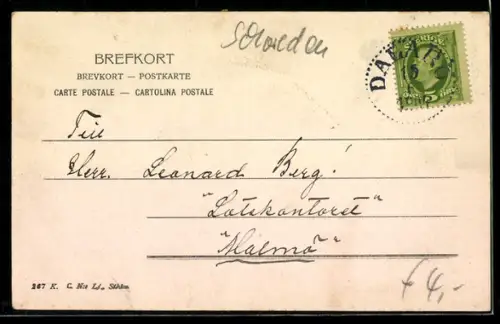 Schweden
BREFKORT
BREVKORT — POSTKARTE
CARTE POSTALE — CARTOLINA POSTALE
SVERIGE
Till
Herr. Leonard Berg!
"Lotskontoret"
"Malmö"
267 K. C. N:s Lj., Sthlm
4,-